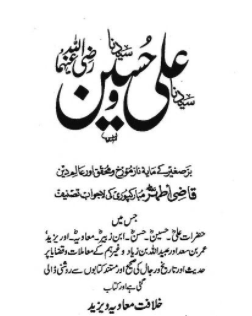 سیدنا علی و سیدنا حسین رضی اللہ عنہما
برصغیر کے مایہ ناز مؤرخ و محقق اور عالم دین
قاضی اطہر مبارکپوری کی لاجواب تصنیف
جس میں
حضرات علیؓ، حسینؓ، حسنؓ، ابن زبیرؓ، معاویہؓ، اور یزید،
عمر بن سعد اور عبیداللہ بن زیاد وغیرہم کے معاملات وقضایا پر
حدیث اور تاریخ ورجال کی صحیح اور مستند کتابوں سے روشنی ڈالی
گئی ہے اور کتاب
خلافت معاویہ ویزید